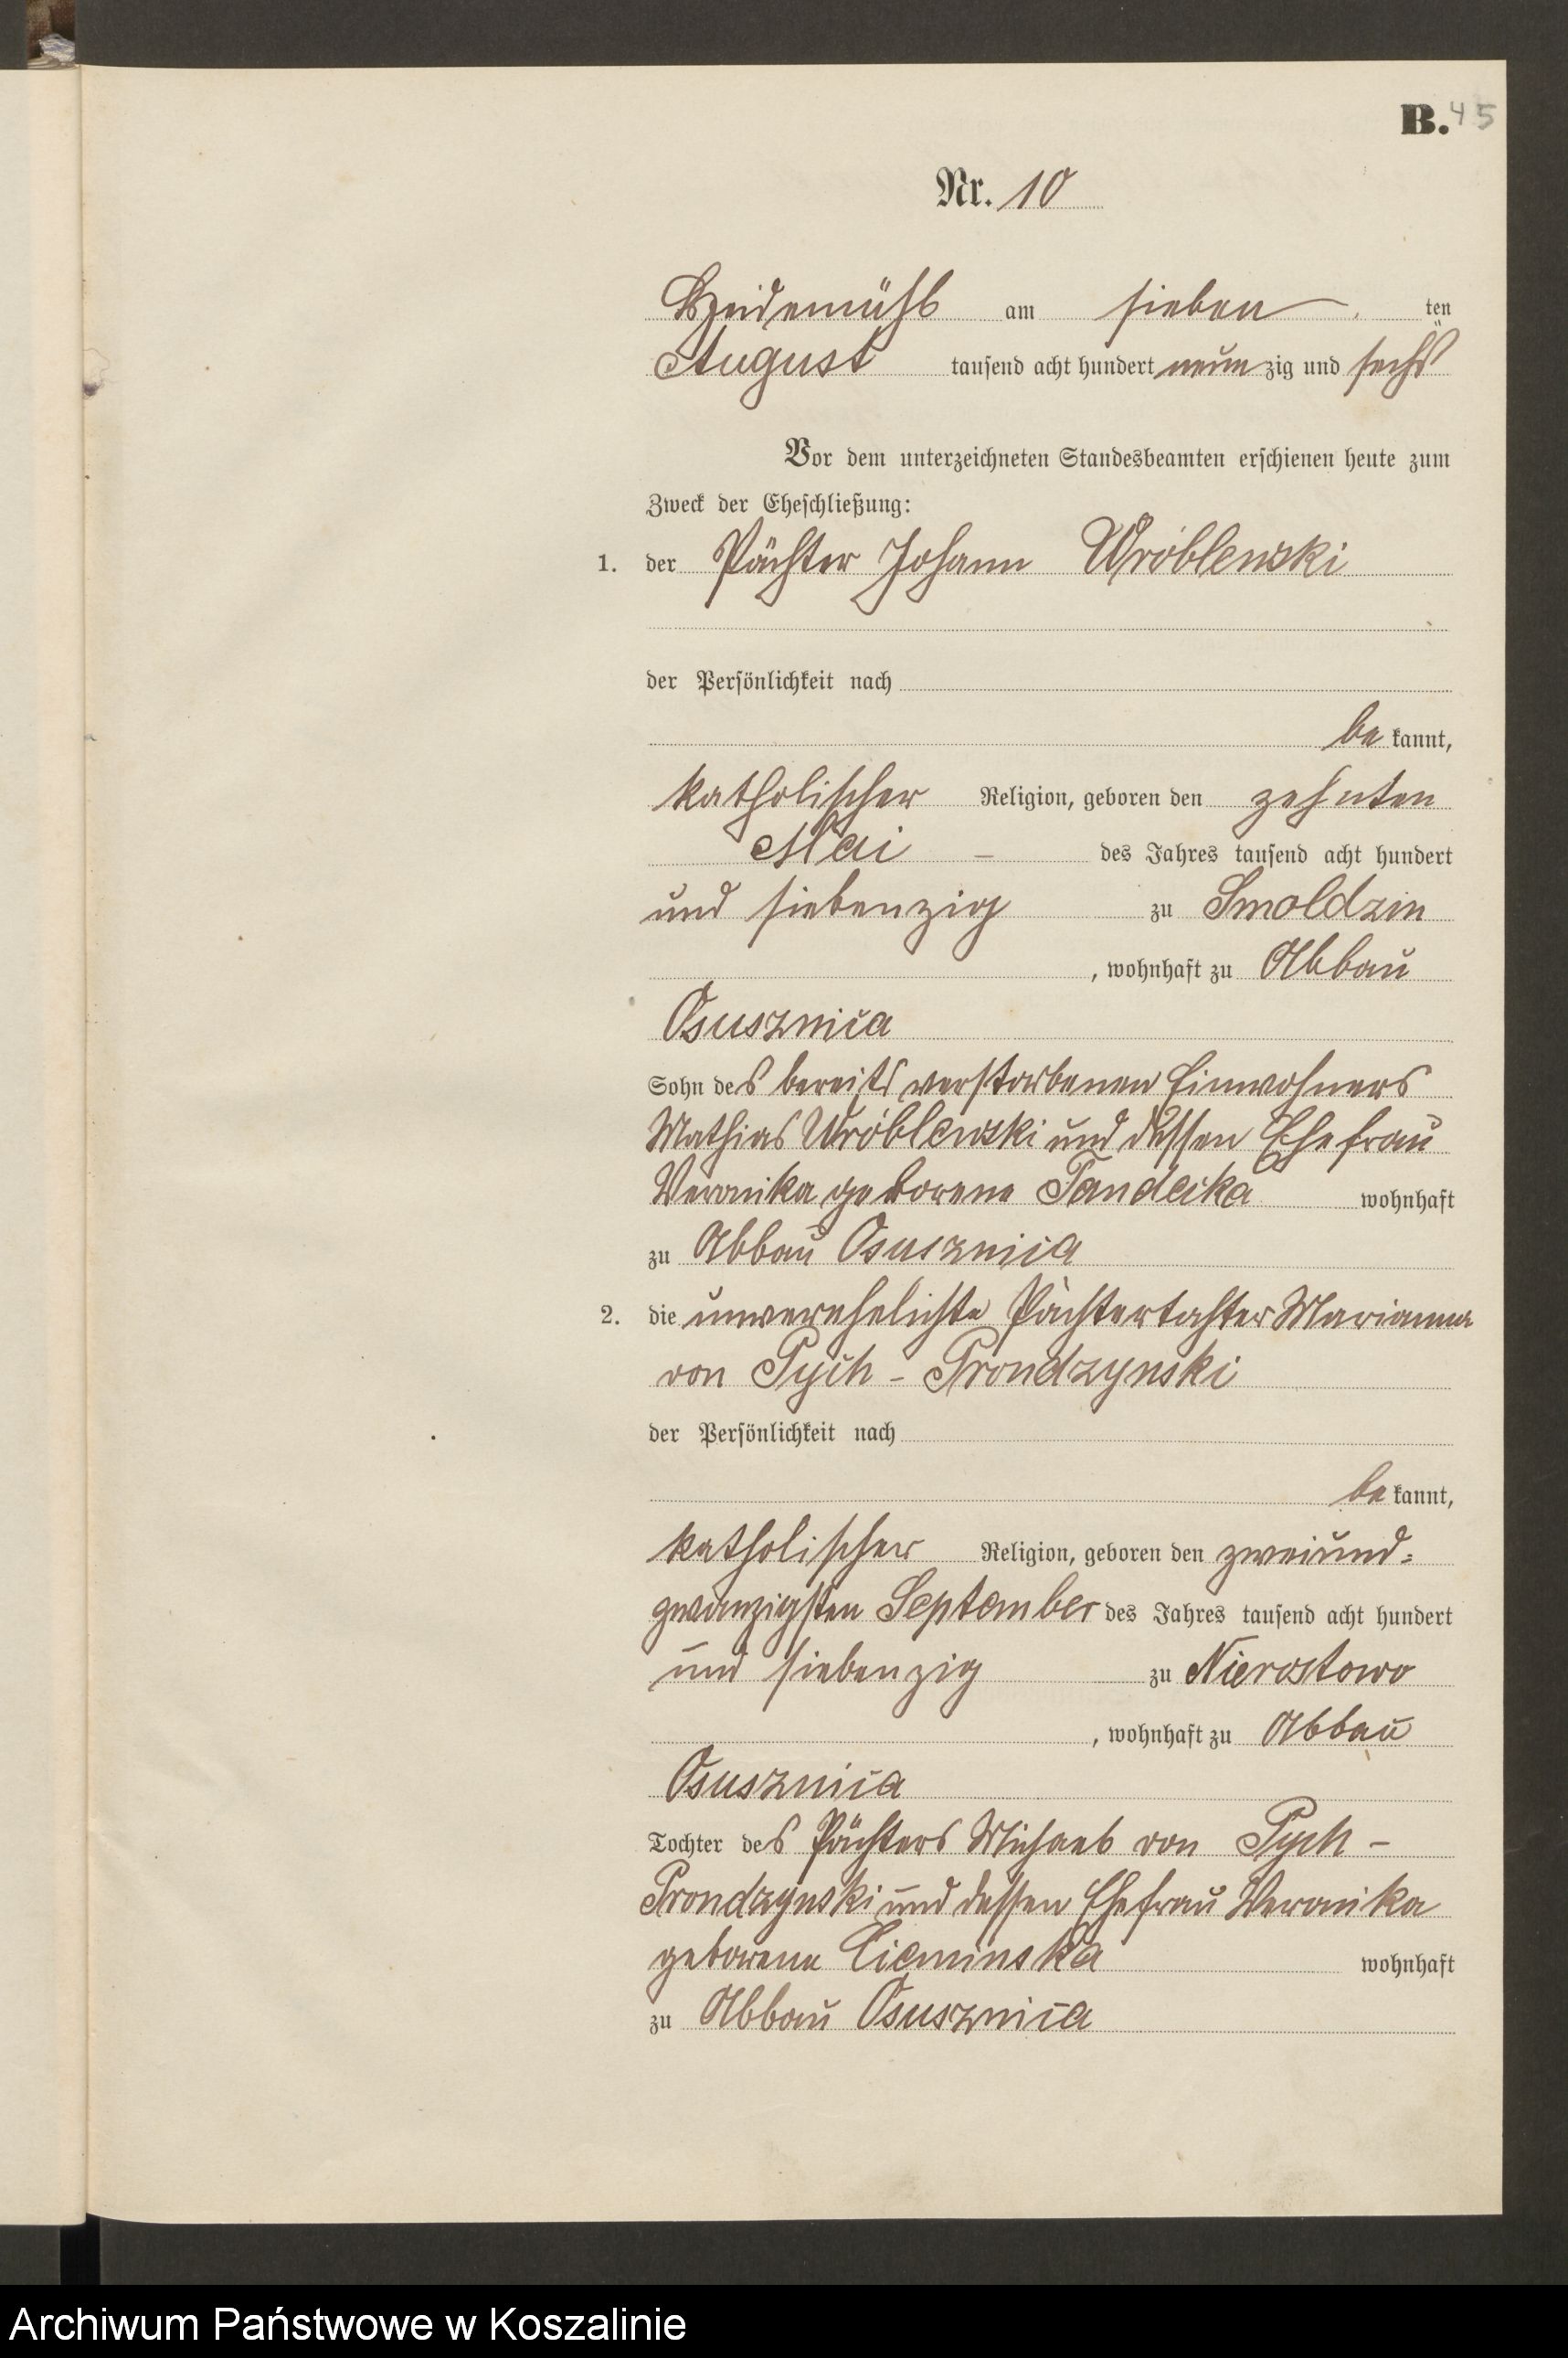 B. 45
Nr. 10
Heidemühl am sieben ten
August tausend acht hundert neun zig und sechs
Vor dem unterzeichneten Standesbeamten erschienen heute zum
Zweck der Eheschließung:
1. der Pächter Johann Wróblewski
der Persönlichkeit nach
be kannt,
katholischer Religion, geboren den zehnten
Mai – des Jahres tausend acht hundert
und siebenzig zu Smoldzin
, wohnhaft zu Abbau
Osusznica
Sohn des bereits verstorbenen Einwohners
Mathias Wróblewski und dessen Ehefrau
Veronika geborene Tandecka wohnhaft
zu Abbau Osusznica
2. die unverehelichte Pächtertochter Marianna
von Pych - Prondzynski
der Persönlichkeit nach
be kannt,
katholischer Religion, geboren den zweiund-
zwanzigsten September des Jahres tausend acht hundert
und siebenzig zu Nierostowo
, wohnhaft zu Abbau
Osusznica
Tochter des Pächters Michael von Pych -
Prondzynski und dessen Ehefrau Veronika
geborene Cieminska wohnhaft
zu Abbau Osusznica
Archiwum Państwowe w Koszalinie